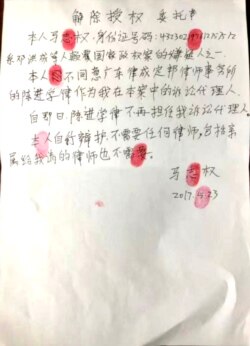 解除授权委托书
本人马志权，身份证号码：
系邓洪成等人颠覆国家政权案的嫌疑人之一
本人 不同意广东律成定邦律师事务所
的陈进学律作为我在本案中的诉讼代理人，
自即日陈进学律不再担任我诉讼代理人。
本人自行辩护不需要任何律师，包括亲
属给我请的律师也不需要。
马志权
2017.5.23